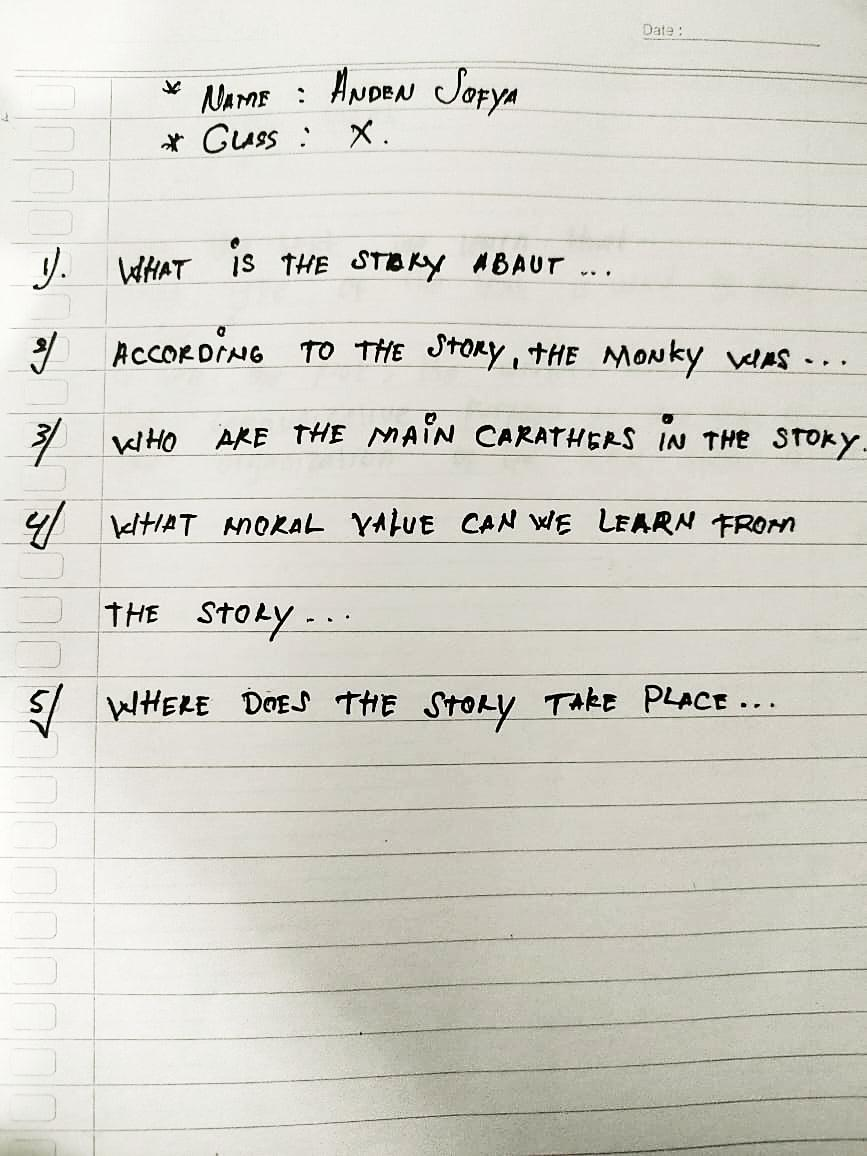 Date :
* NAME : ANDEN SOFYA
* CLASS : X.
1). WHAT iS THE STORY ABAUT ...
2/ ACCORDiNG TO THE STORY, THE MONKY WAS ...
3/ WHO ARE THE MAiN CARATHERS iN THE STORY.
4/ WHAT MORAL VALUE CAN WE LEARN FROM
THE STORY ...
5/ WHERE DOES THE STORY TAKE PLACE ...